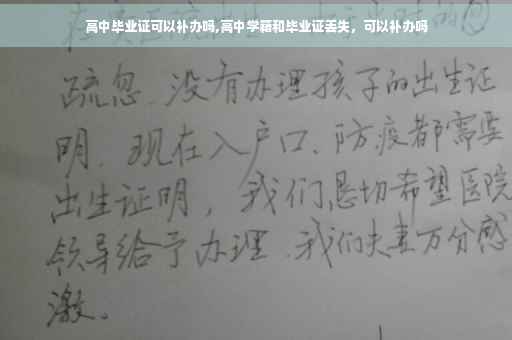 高中毕业证可以补办吗,高中学籍和毕业证丢失，可以补办吗
疏忽.没有办理孩子的出生证
明.现在入户口、防疫都需要
出生证明，我们恳切希望医院
领导给予办理.我们夫妻万分感
激。